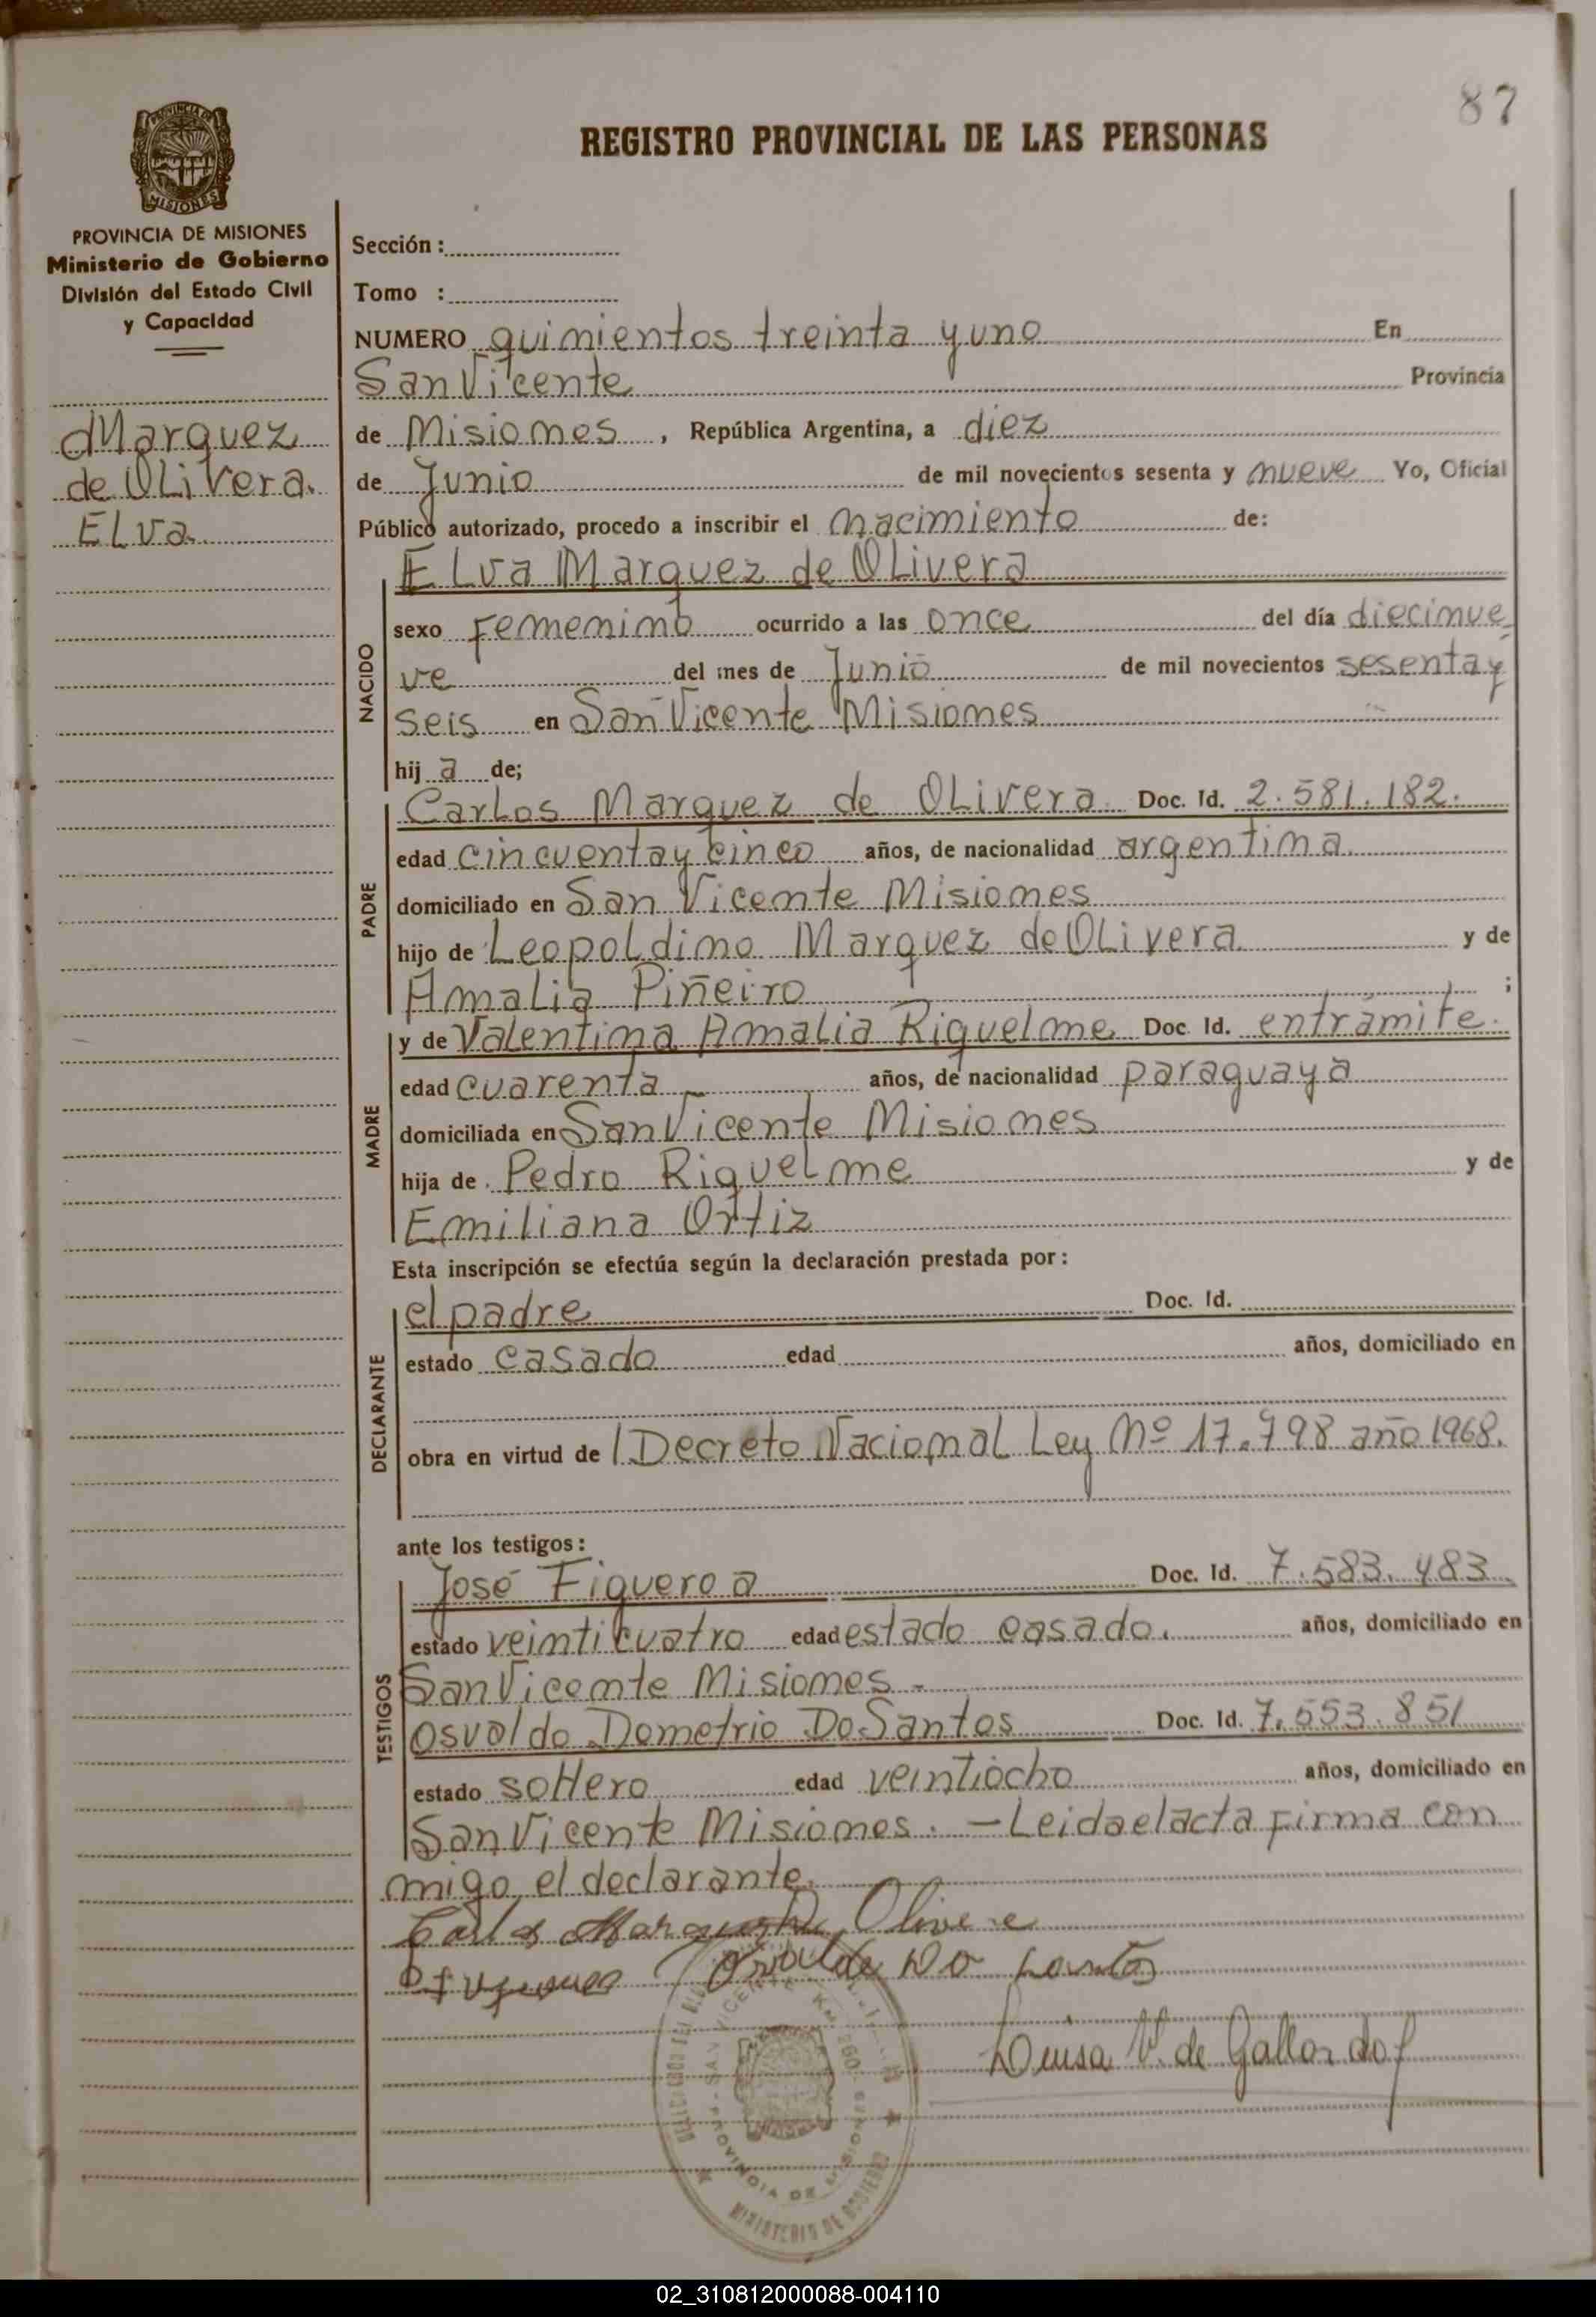 87
REGISTRO PROVINCIAL DE LAS PERSONAS
PROVINCIA DE MISIONES
PROVINCIA DE MISIONES
Ministerio de Gobierno
División del Estado Civil
y Capacidad
Marquez
de OLivera.
ELva.
Sección :
Tomo :
NUMERO quinientos treinta y uno En
San Vicente Provincia
de Misiones , República Argentina, a diez
de Junio de mil novecientos sesenta y nueve Yo, Oficial
Público autorizado, procedo a inscribir el nacimiento de:
NACIDO
ELva Marquez de OLivera
sexo Femenino ocurrido a las once del día diecinue
ve del mes de Junio de mil novecientos sesenta y
seis en San Vicente Misiones
hij a de;
PADRE
CarLos Marquez de OLivera. Doc. Id. 2.581.182.
edad cincuenta y cinco años, de nacionalidad argentina.
domiciliado en San Vicente Misiones
hijo de LeopoLdino Marquez de OLivera y de
Amalia Piñeiro ;
MADRE
y de Valentina Amalia Riquelme Doc. Id. en trámite.
edad cuarenta años, de nacionalidad paraguaya
domiciliada en San Vicente Misiones
hija de Pedro RiqueLme y de
Emiliana Ortiz
Esta inscripción se efectúa según la declaración prestada por :
DECLARANTE
el padre Doc. Id.
estado casado edad años, domiciliado en
obra en virtud de l Decreto Nacional Ley Nº 17.798 año 1968.
ante los testigos :
TESTIGOS
José Figueroa Doc. Id. 7.583.483
estado veinticuatro edad estado casado. años, domiciliado en
San Vicente Misiones -
Osvaldo Demetrio Do Santos Doc. Id. 7.553.851
estado soltero edad veintiocho años, domiciliado en
San Vicente Misiones. - Leida el acta Firma con
migo el declarante.
Carlos Marquez De Olivera
Osvaldo Do Santos
SAN VICENTE
PROVINCIA DE MISIONES
MINISTERIO DE GOBIERNO
Luisa V. de Gallardo
02_310812000088-004110